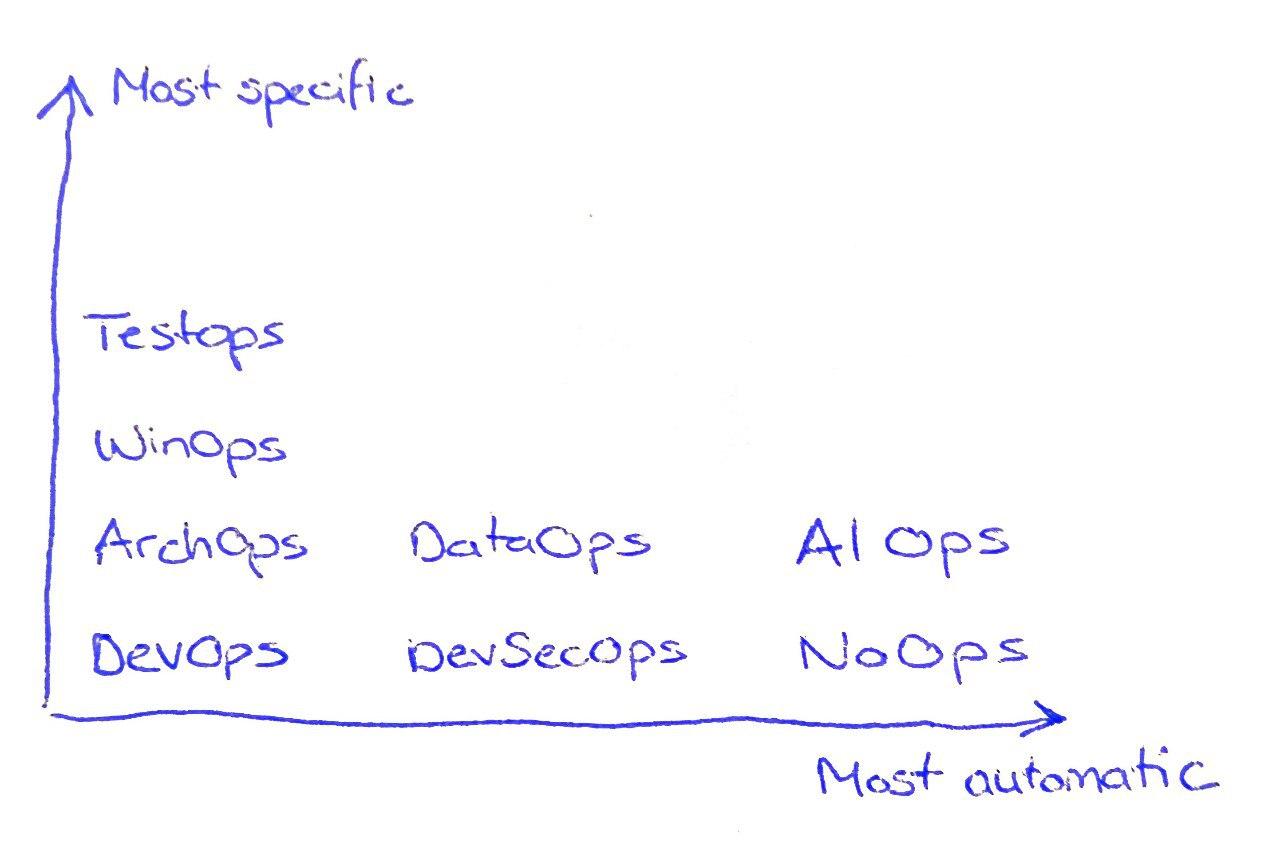 Most specific
Testops
WinOps
ArchOps DataOps AI Ops
DevOps DevSecOps NoOps
Most automatic